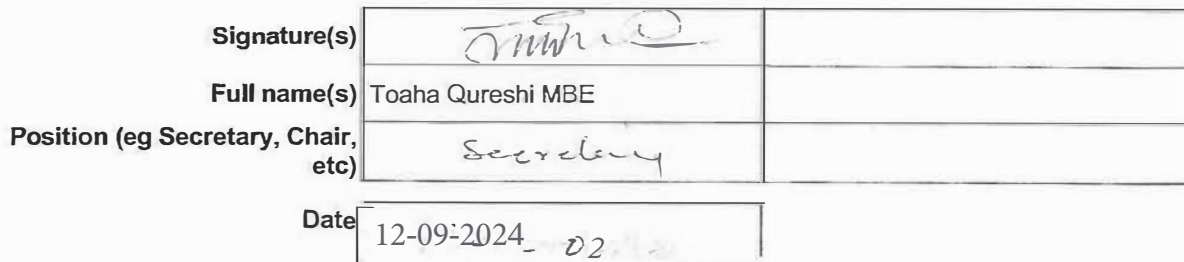 Signature(s)
Full name(s) Toaha Qureshi MBE
Position (eg Secretary, Chair, etc) Secretary
Date 12-09-2024 - 02